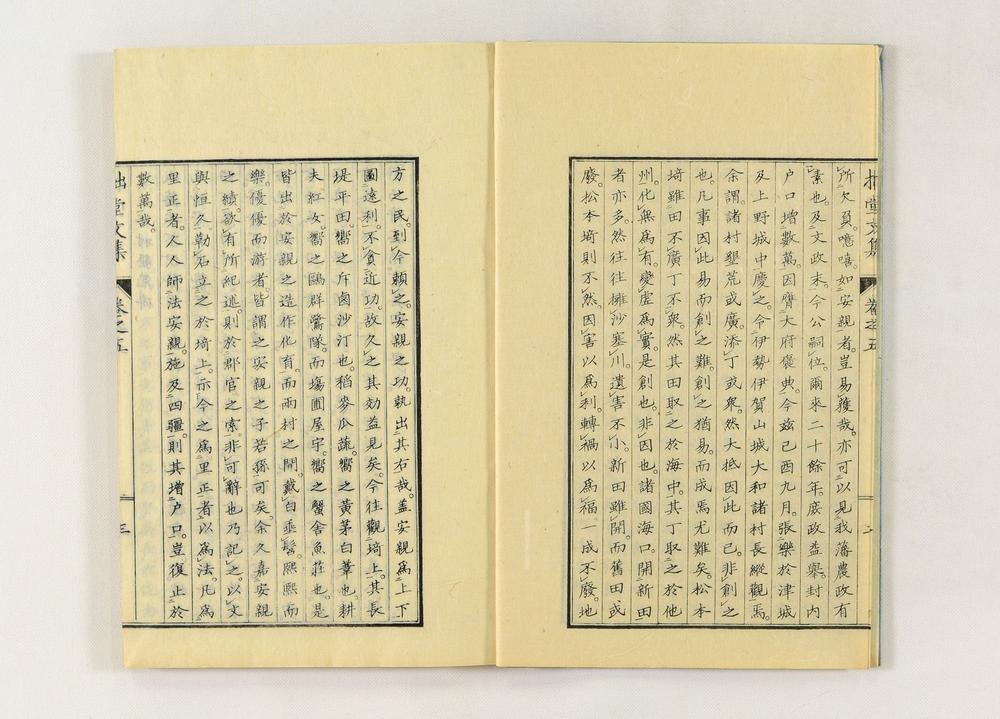 拙堂文集 卷之五 二
所欠頁。噫嘻。如安親者。豈易獲哉。亦可以見我藩農政有
素也。及文政末。今公嗣位。爾來二十餘年。庶政益舉。封内
户口增數萬。因膺大府褒典。今兹己酉九月。張樂於津城
及上野城中慶之。令伊勢伊賀山城大和諸村長縱觀焉。
余謂。諸村墾荒或廣。添丁或衆。然大抵因此而已。非創之
也。凡事因此易而創之難。創之猶易。而成焉尤難矣。松本
埼雖田不廣丁不衆。然其田取之於海中。其丁取之於他
州。化無爲有。變虚爲實。是創也。非因也。諸國海口。開新田
者亦多。然往往擁沙塞川。遺害不小。新田雖開。而舊田或
廢。松本埼則不然。因害以爲利。轉禍以爲福。一成不廢。地
方之民。到今賴之。安親之功。孰出其右哉。蓋安親爲上下
圖遠利。不貪近功。故久之其効益見矣。今往觀埼上。其長
堤平田。嚮之斥鹵沙汀也。稻麥瓜蔬。嚮之黃茅白葦也。耕
夫紅女。嚮之鷗群鷺隊。而塲圃屋宇。嚮之蟹舍魚莊也。是
皆出於安親之造作化有。而兩村之間。戴白垂髫。熙熙而
樂。優優而游者。皆謂之安親之子若孫可矣。余久嘉安親
之績。欲有所紀述。則於郡官之索。非可辭也。乃記之。以文
與恒久勒石立之於埼上。示今之爲里正者以爲法。凡爲
里正者。人人師法安親。施及四疆。則其增户口。豈復止於
數萬哉。
拙堂文集 卷之五 三